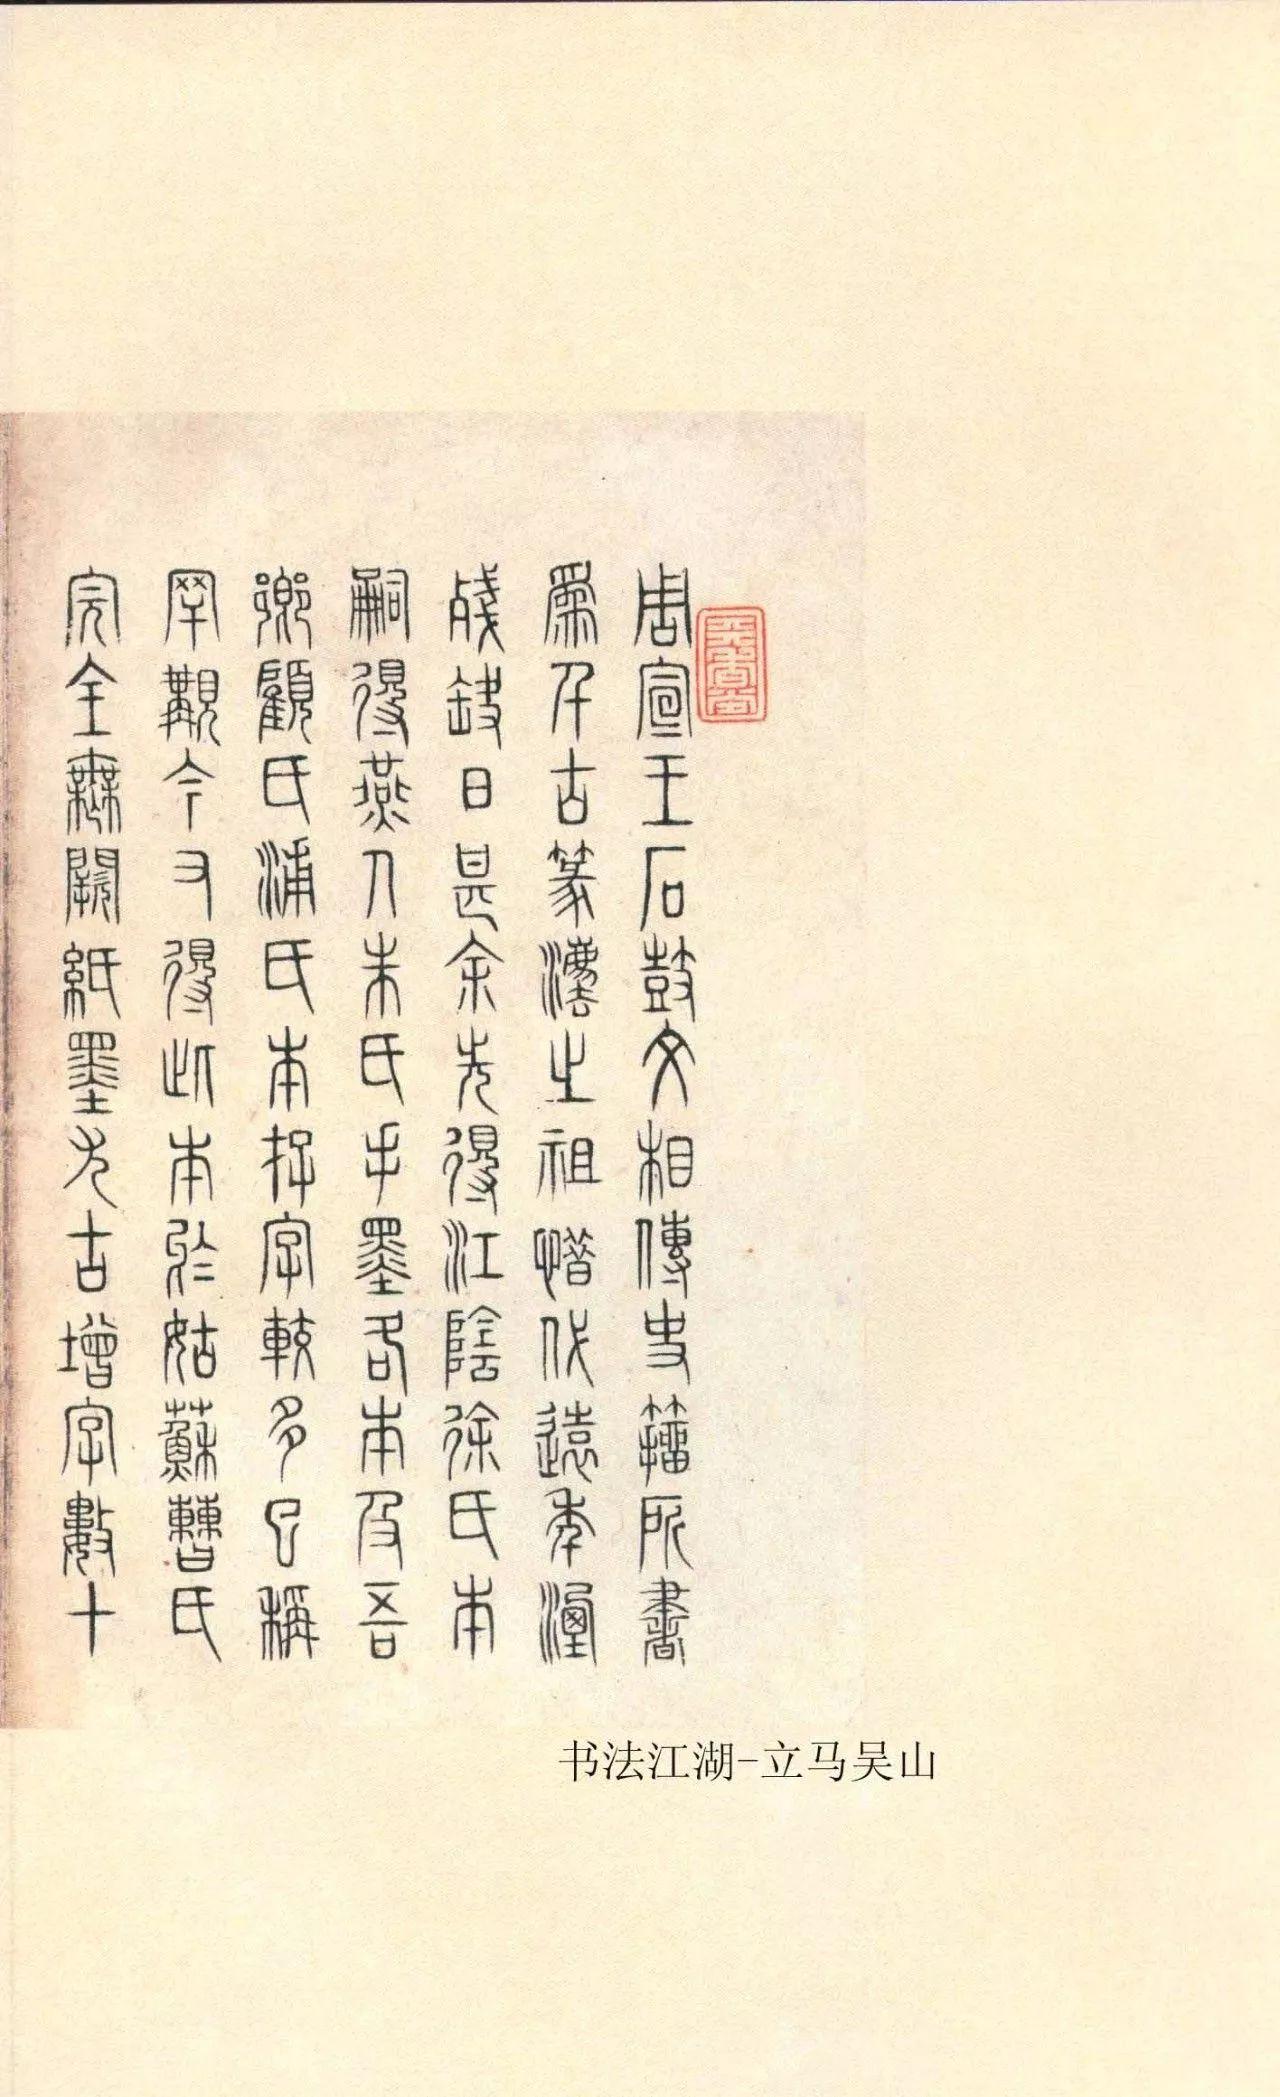 周宣王石鼓文相傳史籀所書
為千古篆法之祖惜代遠年湮
殘缺日甚余先得江陰徐氏本
嗣得燕人朱氏手墨名本及吾
鄉顧氏浦氏本捋字較多已稱
罕觀今又得此本於姑蘇曹氏
完全無闕紙墨尤古增字數十
书法江湖-立马吴山